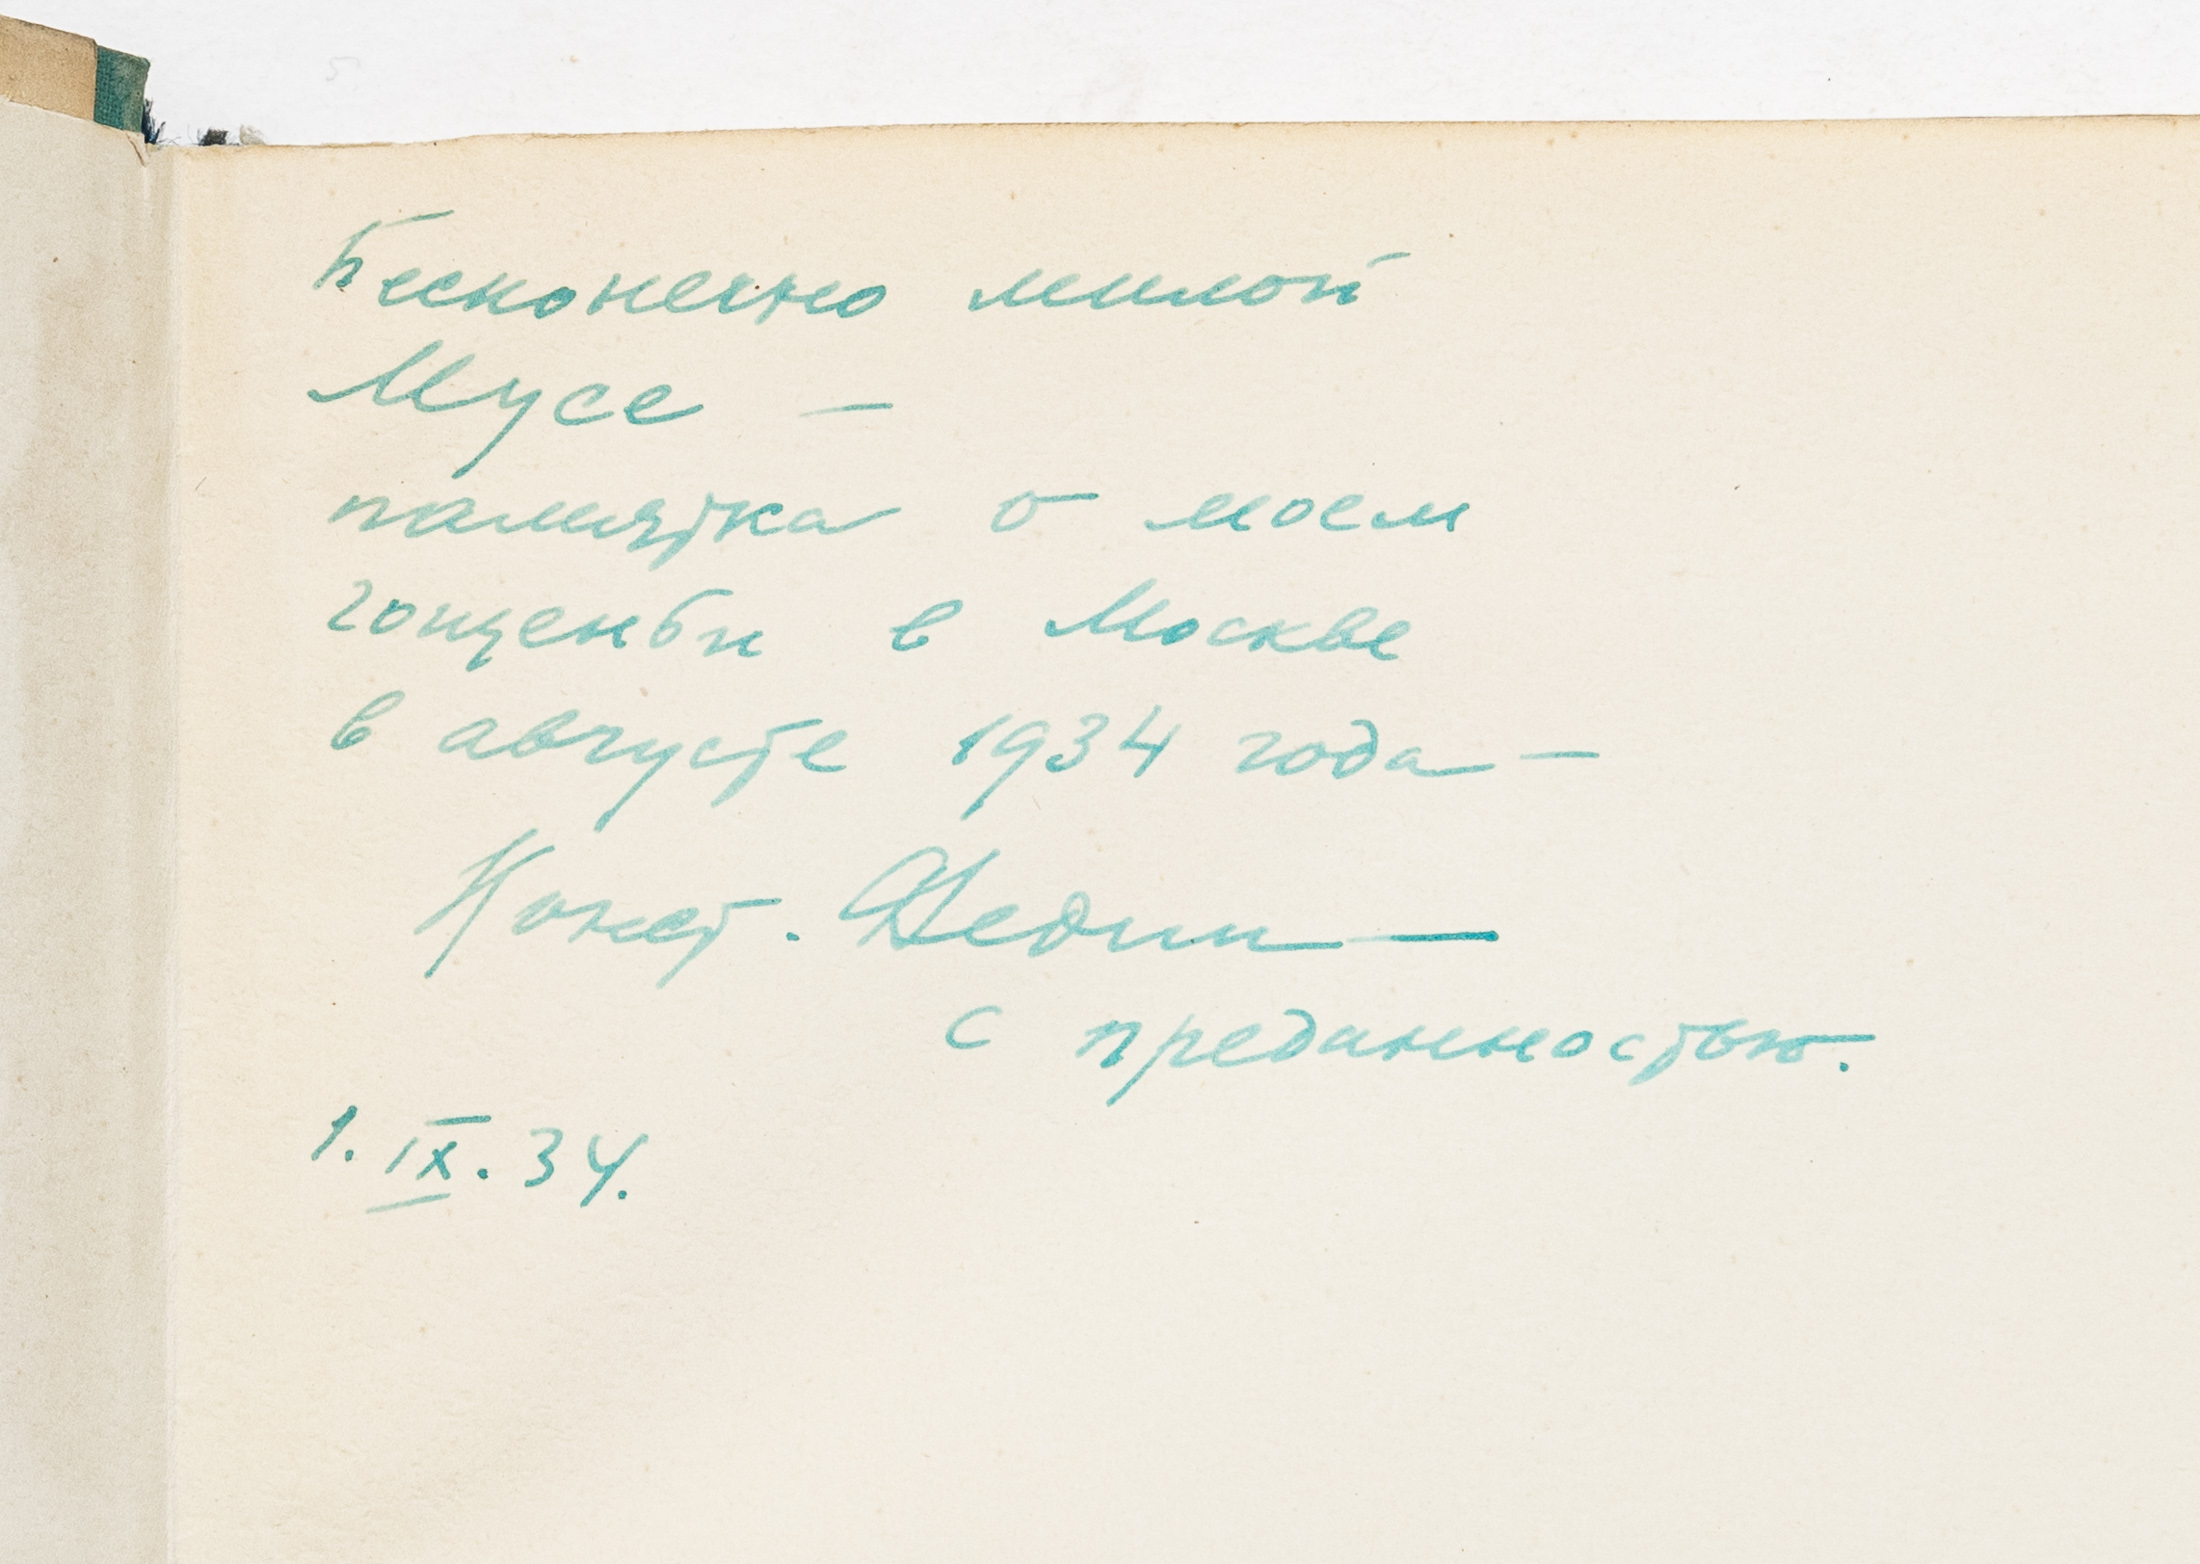 Бесконечно милой
Мусе —
памятка о моем
гощеньи в Москве
в августе 1934 года —
Конст. Федин —
с преданностью.
1. IX. 34.